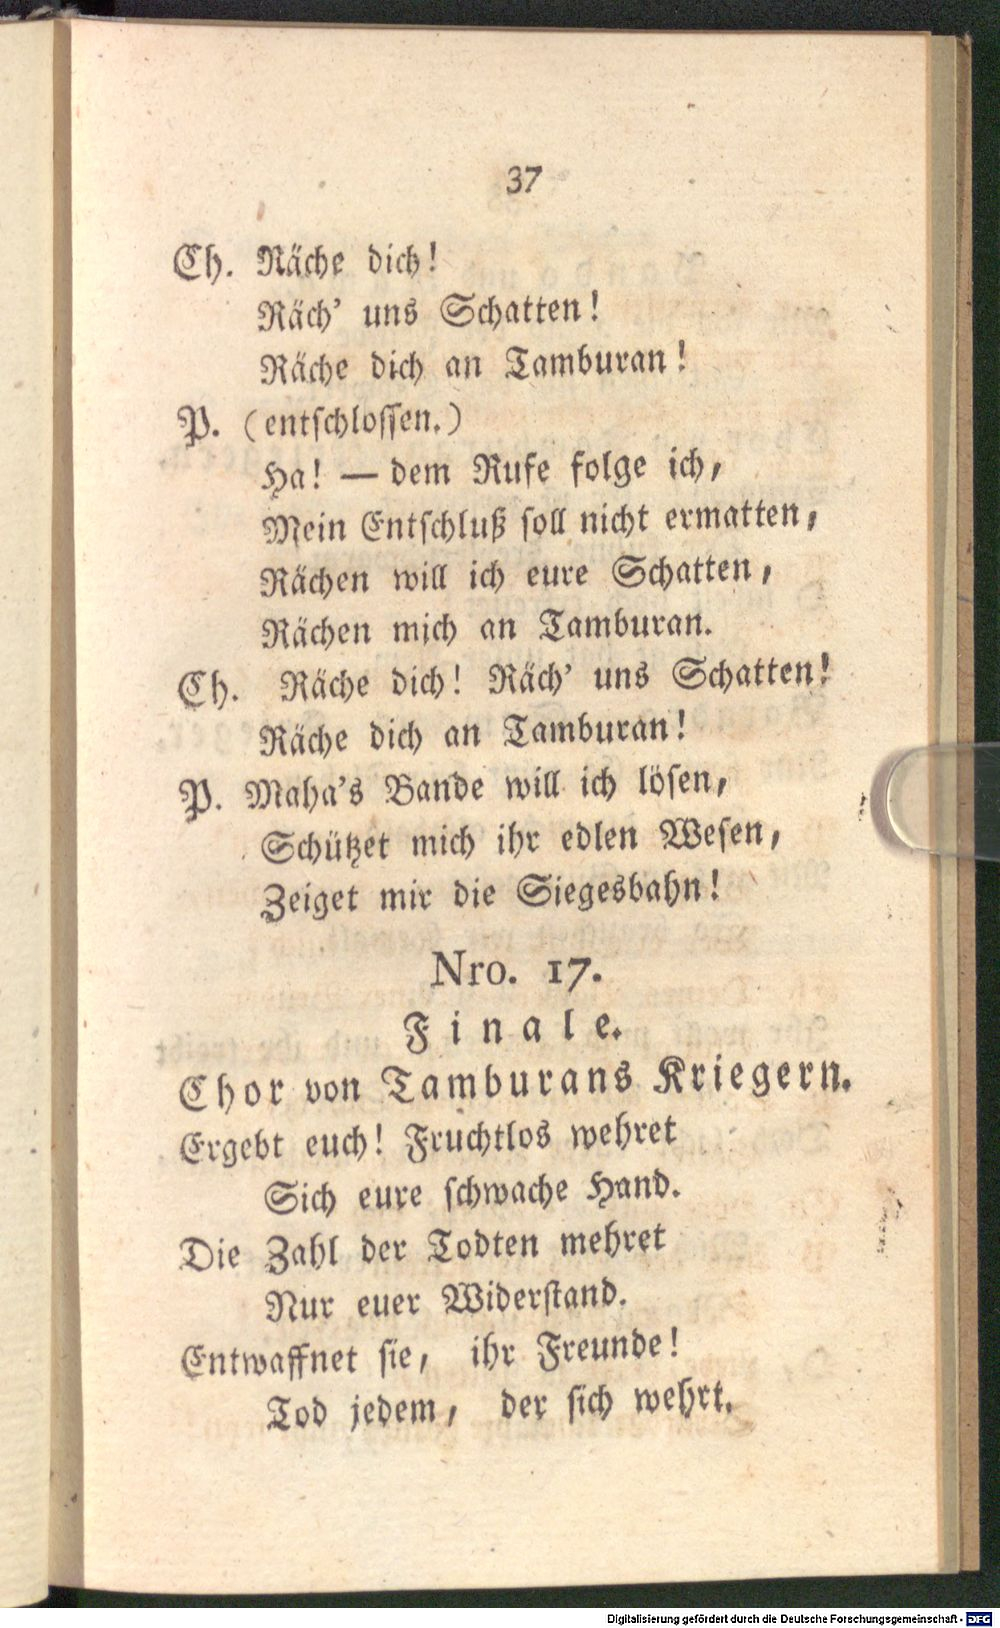 37
Ch. Räche dich!
Räch' uns Schatten!
Räche dich an Tamburan!
P. (entschlossen.)
Ha! — dem Rufe folge ich,
Mein Entschluß soll nicht ermatten,
Rächen will ich eure Schatten,
Rächen mich an Tamburan.
Ch. Räche dich! Räch' uns Schatten!
Räche dich an Tamburan!
P. Maha's Bande will ich lösen,
Schützet mich ihr edlen Wesen,
Zeiget mir die Siegesbahn!
Nro. 17.
Finale.
Chor von Tamburans Kriegern.
Ergebt euch! Fruchtlos wehret
Sich eure schwache Hand.
Die Zahl der Todten mehret
Nur euer Widerstand.
Entwaffnet sie, ihr Freunde!
Tod jedem, der sich wehrt.
Digitalisierung gefördert durch die Deutsche Forschungsgemeinschaft - DFG